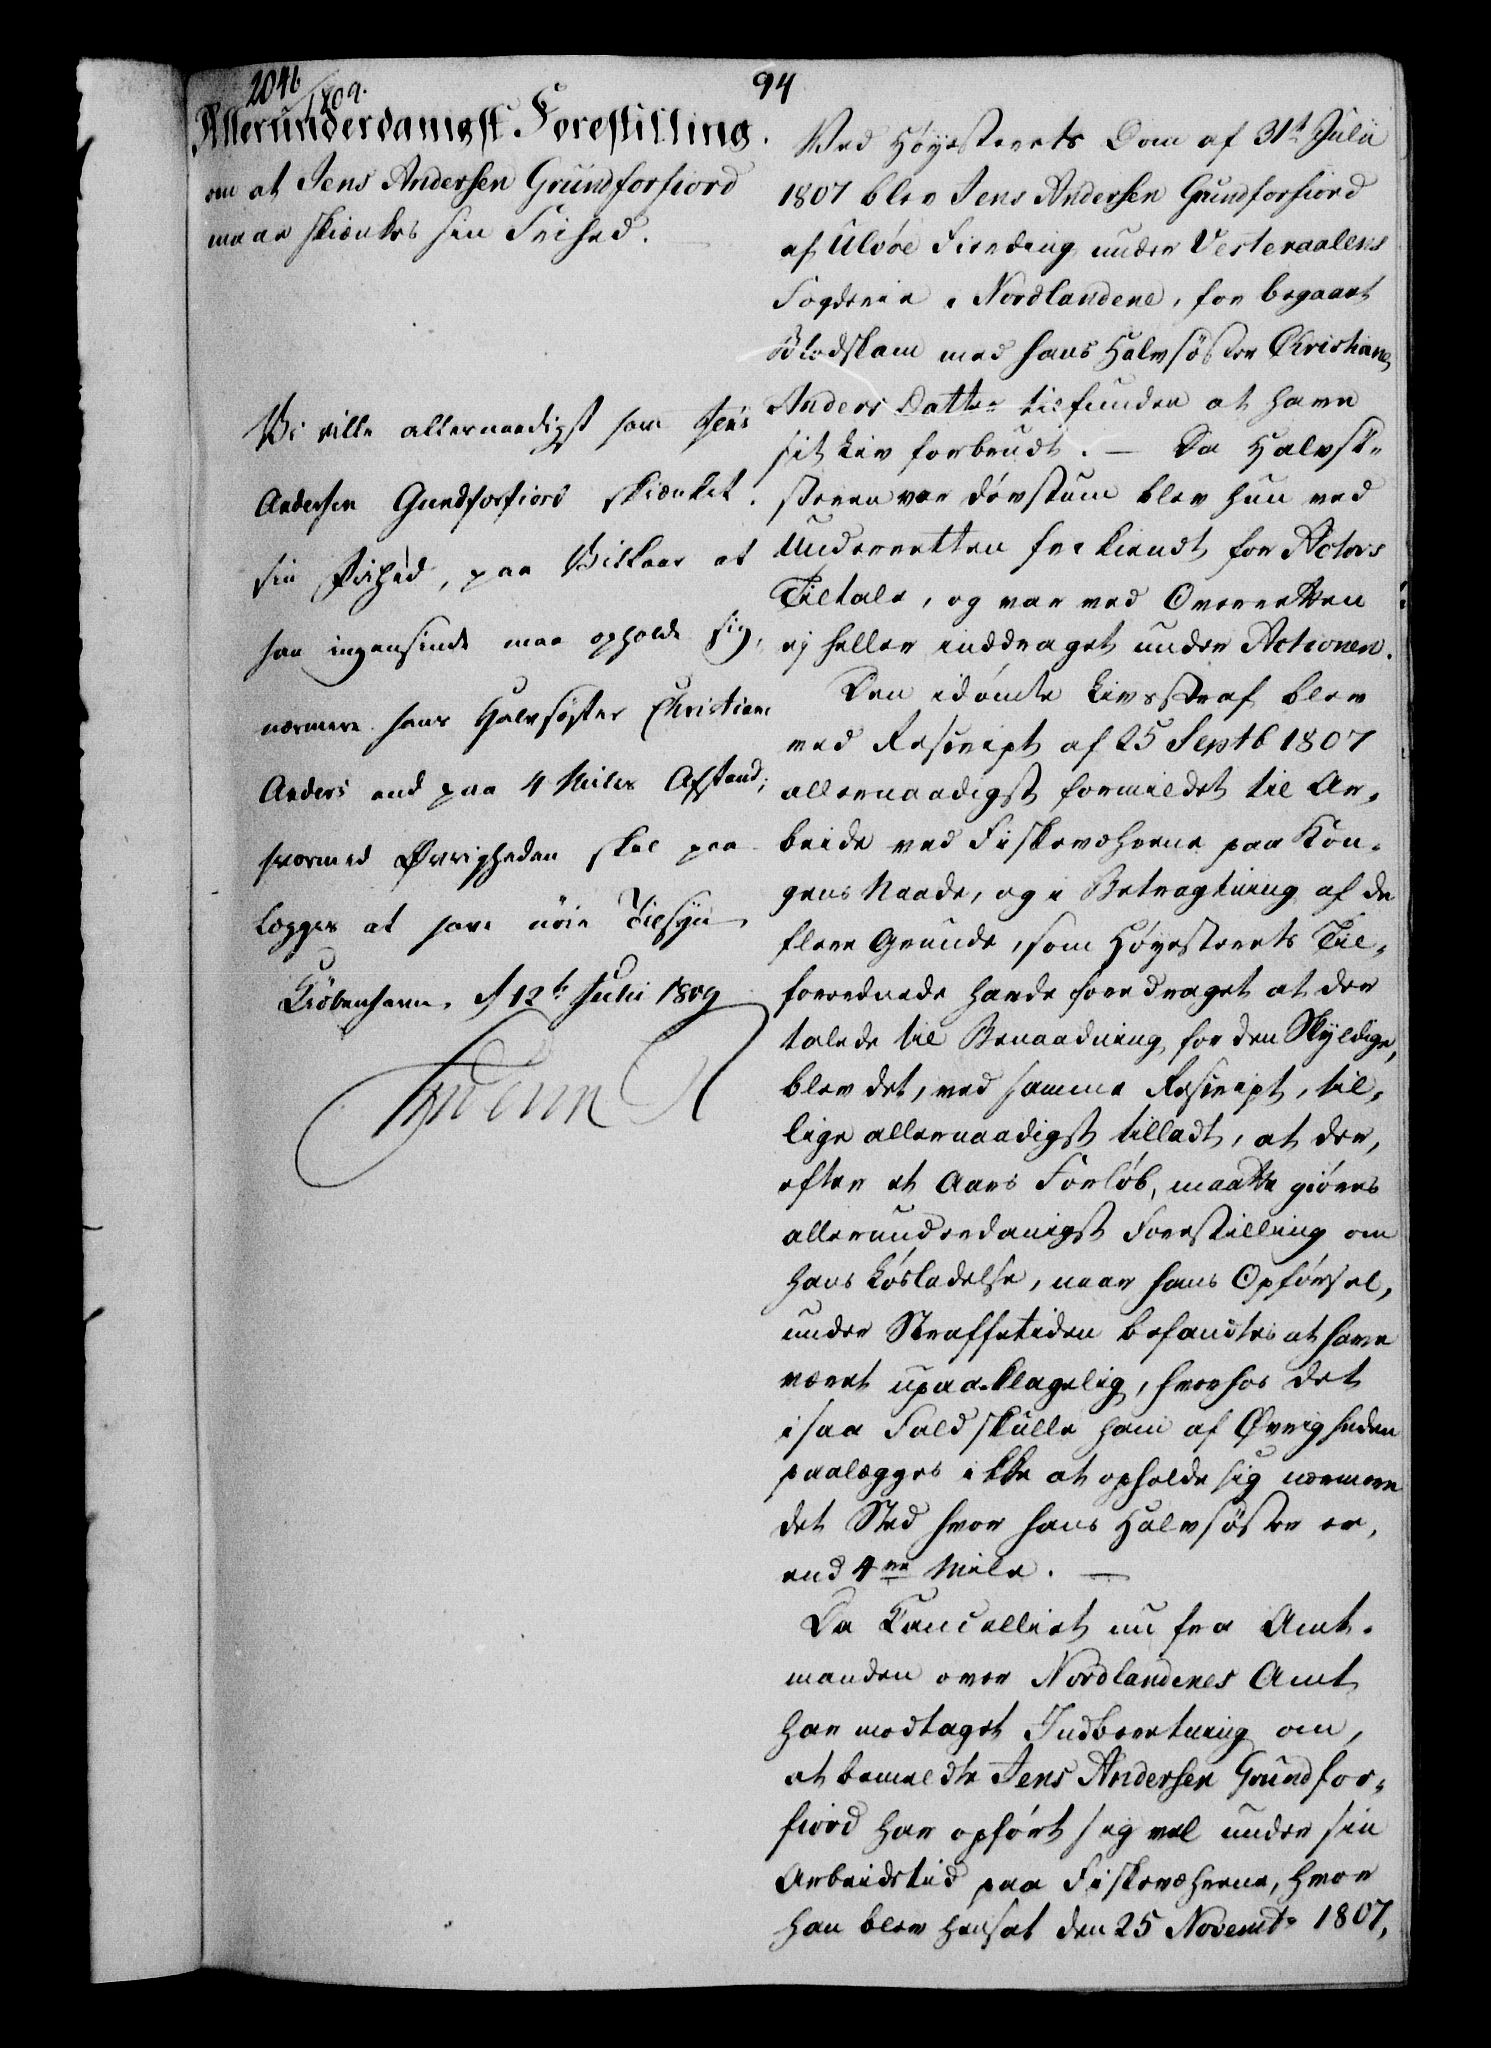 2046
1809.
94
Allerunderdanigst Forestilling.
om at Jens Andersen Grundforfiord
maae skienkes sin Frihed.
Vi ville allernaadigst have Jens
Andersen Grundforfiord skienket
sin Frihed, paa Vilkaar at
han ingensinde maa opholde sig
nærmere hans Halvsøster Christiane
Anders end paa 4 Miles Afstand;
hvormed Øvrigheden skal paa
lægges at have nøie Tilsyn
Kiöbenhavn, d 12te Julii 1809
Frederik R
Ved Høyesterets Dom af 31t Julii
1807 blev Jens Andersen Grundforfiord
af Ulvöe Fierding under Vesteraalens
Fogderie i Nordlandene, for begaaet
Blodskam med hans Halvsöster Christiane
Anders Datter tilfunden at have
sit Liv forbrudt. — Da Halvsö-
steren var døvstum blev hun ved
Underretten frekiendt for Actors
Tiltale, og var ved Overretten
ej heller inddraget under Actionen.
Den idömte Livsstraf blev
ved Rescript af 25 Septb 1807
allernaadigst formildet til Ar-
beide ved Fiskeværerne paa Kon-
gens Naade, og i Betragtning af de
flere Grunde, som Høyesterets Til-
forordnede havde foredraget at der
talede til Benaadning for den Skyldige,
blev det, ved samme Rescript, til-
lige allernaadigst tilladt, at der,
efter et Aars Forløb, maatte giöres
allerunderdanigst Forestilling om
hans Løsladelse, naar hans Opførsel,
under Straffetiden befandtes at have
været upaaklagelig, hvorhos det
i saa Fald skulle ham af Øvrigheden
paalægges ikke at opholde sig nærmere
det Sted hvor hans Halvsöster er,
end 4re Mile. —
Da Cancelliet nu fra Amt-
manden over Nordlandenes Amt
har modtaget Indberetning om,
at bemeldte Jens Andersen Grundfor-
fiord har opført sig vel under sin
Arbeidstid paa Fiskeværerne, hvor
han blev hensat den 25 Novembr 1807,